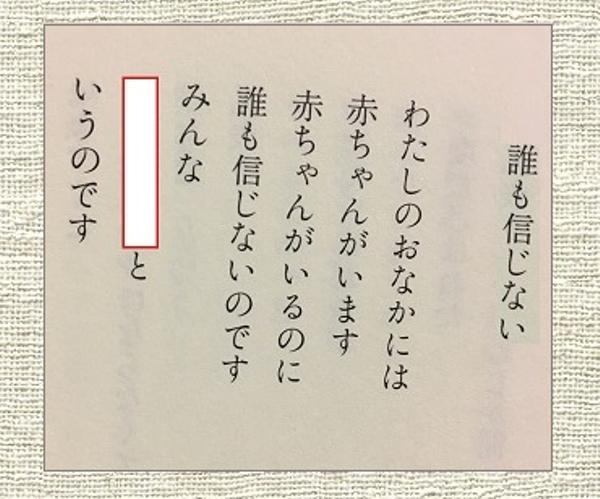 誰も信じない
わたしのおなかには
赤ちゃんがいます
赤ちゃんがいるのに
誰も信じないのです
みんな
と
いうのです